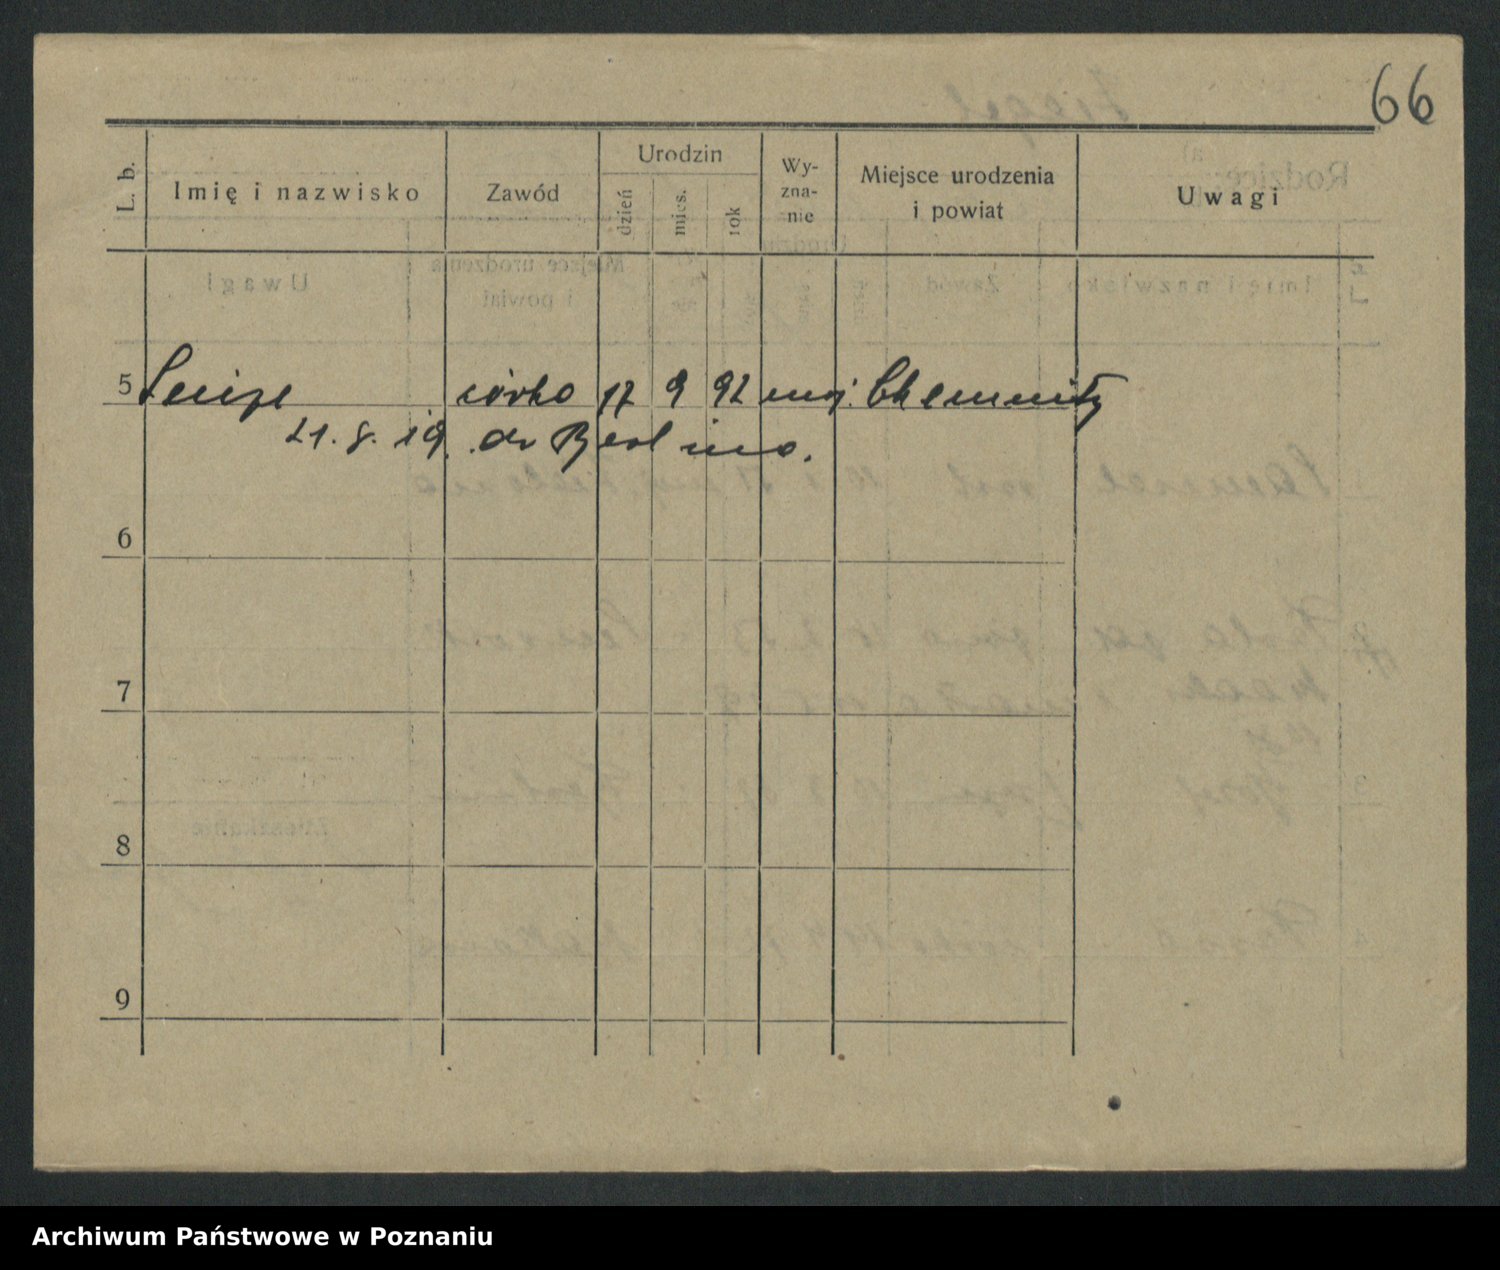 66
L. b.
Imię i nazwisko
Zawód
Urodzin
dzień
mies.
rok
Wy-
zna-
nie
Miejsce urodzenia
i powiat
Uwagi
5 córka 17 9 92 moj. Chemnitz
21. 8. 19. do Berlina.
6
7
8
9
Archiwum Państwowe w Poznaniu